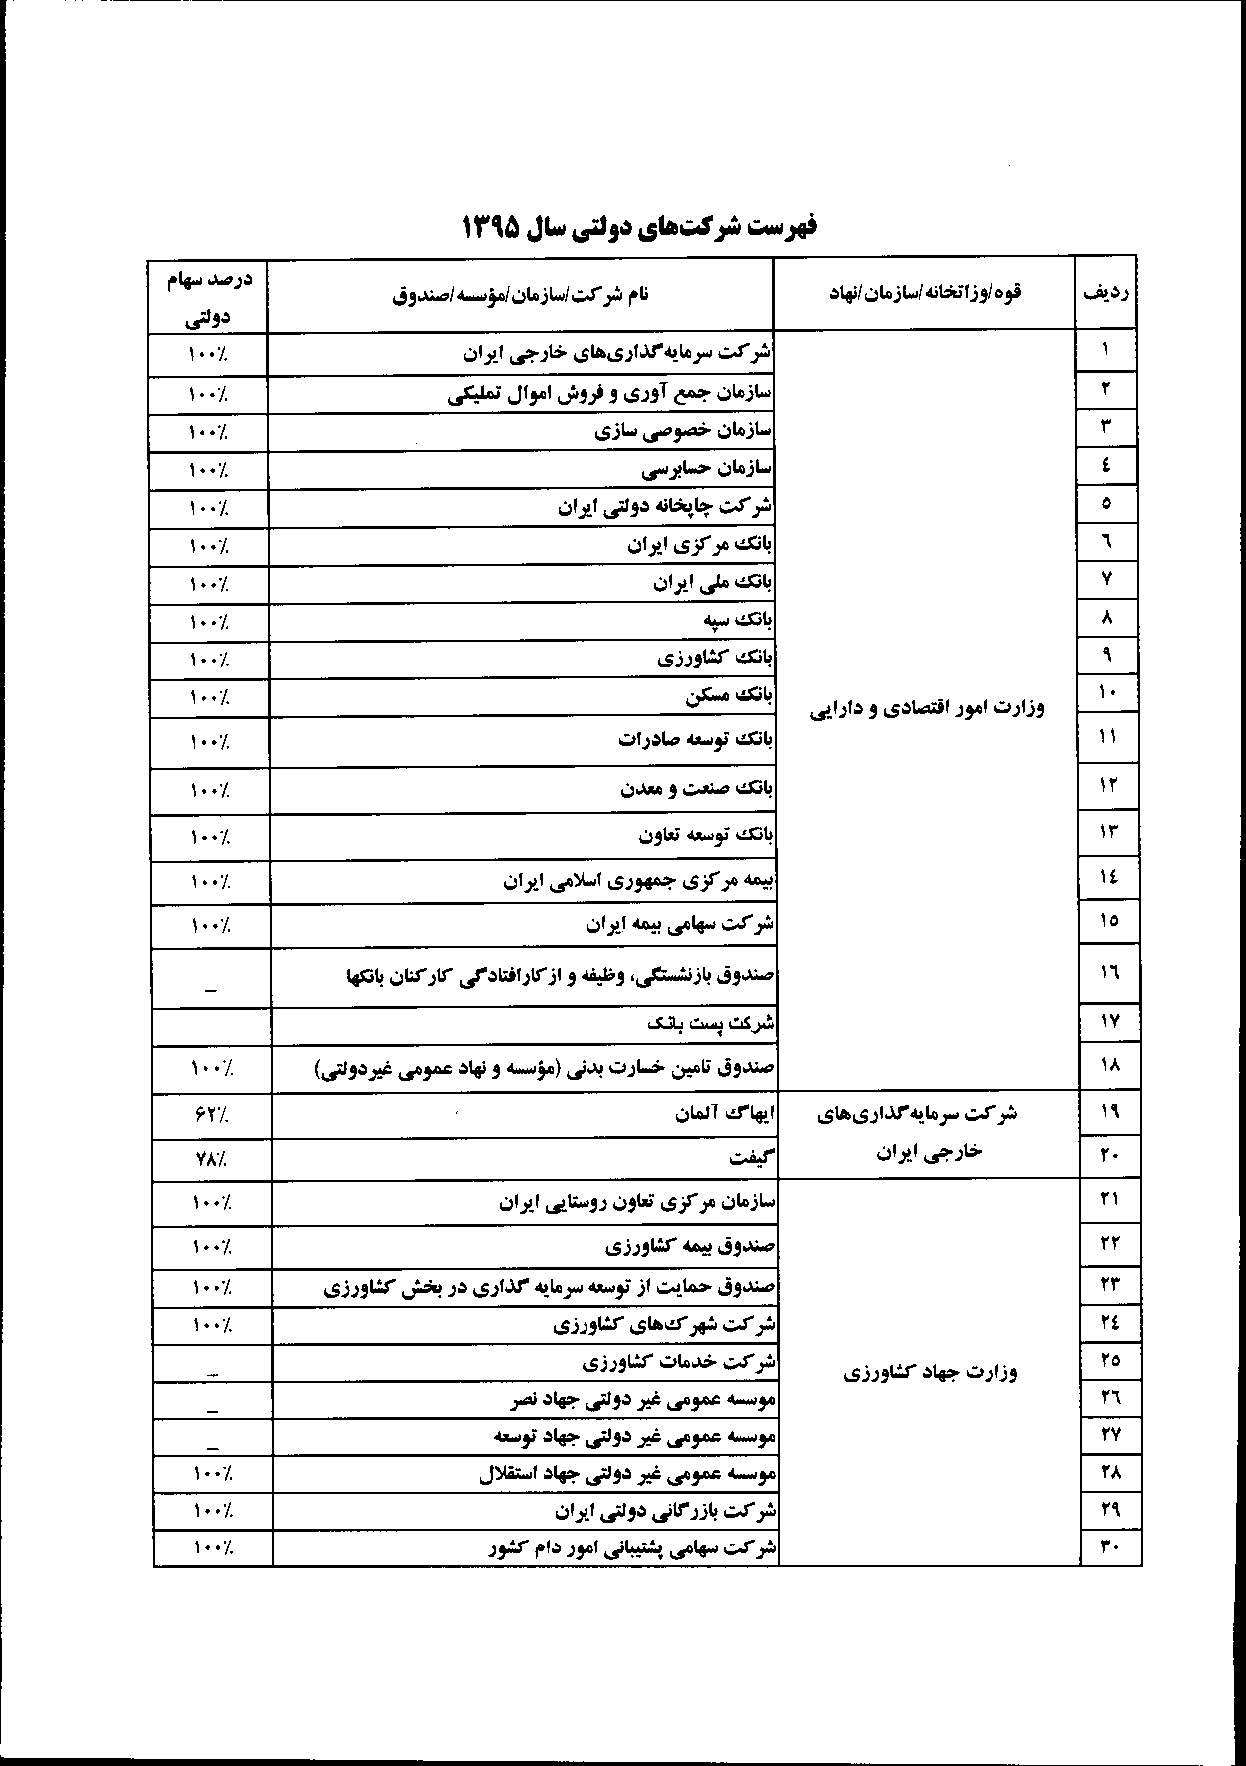 فهرست شرکت‌های دولتی سال ۱۳۹۵
ردیف قوه/وزاتخانه/سازمان/نهاد نام شرکت/سازمان/مؤسسه/صندوق درصد سهام دولتی
۱ وزارت امور اقتصادی و دارایی شرکت سرمایه‌گذاری‌های خارجی ایران ۱۰۰٪
۲ سازمان جمع آوری و فروش اموال تملیکی ۱۰۰٪
۳ سازمان خصوصی سازی ۱۰۰٪
٤ سازمان حسابرسی ۱۰۰٪
٥ شرکت چاپخانه دولتی ایران ۱۰۰٪
٦ بانک مرکزی ایران ۱۰۰٪
۷ بانک ملی ایران ۱۰۰٪
۸ بانک سپه ۱۰۰٪
۹ بانک کشاورزی ۱۰۰٪
۱۰ بانک مسکن ۱۰۰٪
۱۱ بانک توسعه صادرات ۱۰۰٪
۱۲ بانک صنعت و معدن ۱۰۰٪
۱۳ بانک توسعه تعاون ۱۰۰٪
۱٤ بیمه مرکزی جمهوری اسلامی ایران ۱۰۰٪
۱٥ شرکت سهامی بیمه ایران ۱۰۰٪
۱٦ صندوق بازنشستگی، وظیفه و ازکارافتادگی کارکنان بانکها _
۱۷ شرکت پست بانک
۱۸ صندوق تامین خسارت بدنی (مؤسسه و نهاد عمومی غیردولتی) ۱۰۰٪
۱۹ شرکت سرمایه‌گذاری‌های خارجی ایران ایهاگ آلمان ۶۲٪
۲۰ گیفت ۷۸٪
۲۱ وزارت جهاد کشاورزی سازمان مرکزی تعاون روستایی ایران ۱۰۰٪
۲۲ صندوق بیمه کشاورزی ۱۰۰٪
۲۳ صندوق حمایت از توسعه سرمایه گذاری در بخش کشاورزی ۱۰۰٪
۲٤ شرکت شهرک‌های کشاورزی ۱۰۰٪
۲٥ شرکت خدمات کشاورزی _
۲٦ موسسه عمومی غیر دولتی جهاد نصر _
۲۷ موسسه عمومی غیر دولتی جهاد توسعه _
۲۸ موسسه عمومی غیر دولتی جهاد استقلال ۱۰۰٪
۲۹ شرکت بازرگانی دولتی ایران ۱۰۰٪
۳۰ شرکت سهامی پشتیبانی امور دام کشور ۱۰۰٪